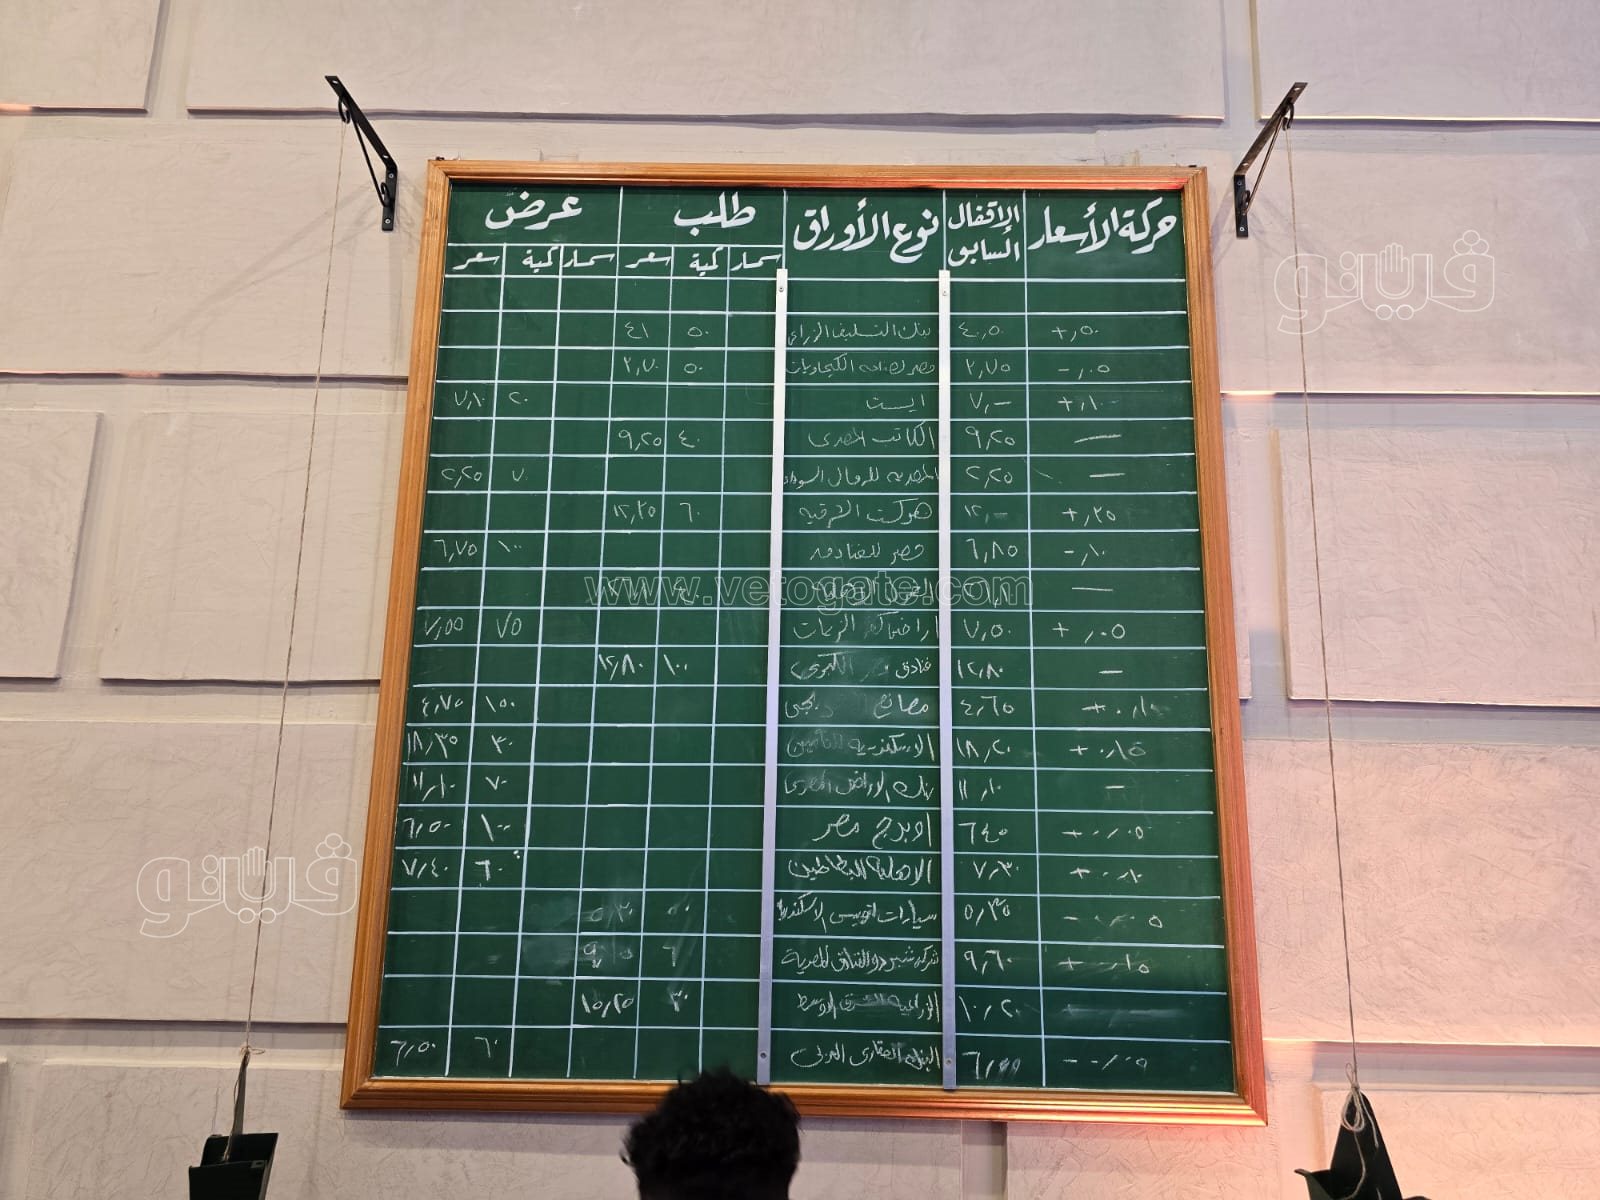 حركة الأسعار الإقفال السابق نوع الأوراق طلب عرض
سمسار كمية سعر سمسار كمية سعر
+٫٥٠ ٤٠٫٥٠ بنك التسليف الزراعى ٥٠ ٤١
-٫٠٥ ٢٫٧٥ مصر لصناعه الكيماويات ٥٠ ٢٫٧٠
+٫١٠ ٧٫- ايست ٢٠ ٧٫١٠
— ٩٫٢٥ الكاتب المصرى ٤٠ ٩٫٢٥
— ٢٫٢٥ المصريه للرمال السوداء ٧٠ ٢٫٢٥
+٫٢٥ ١٢٫- الشرقيه ٦٠ ١٢٫٢٥
-٫١٠ ٦٫٨٥ مصر للفنادق ١٠٠ ٦٫٧٥
—
+٫٠٥ ٧٫٥٠ ٧٥ ٧٫٥٥
— ١٢٫٨٠ فنادق الكبرى ١٠٠ ١٢٫٨٠
+٠٫١٠ ٤٫٦٥ مصانع ١٥٠ ٤٫٧٥
+٠٫١٥ ١٨٫٢٠ الاسكندرية للتأمين ٣٠ ١٨٫٣٥
— ١١٫١٠ بنك الاراضى المصرى ٧٠ ١١٫١٠
+٠٫٠٥ ٦٤٥ مصر ١٠٠ ٦٫٥٠
+٠٫١٠ ٧٫٣٠ الاهلية للبطاطين ٦٠ ٧٫٤٠
-٠٫٠٥ ٥٫٣٥ سيارات اتوبيس الاسكندرية ٥٠ ٥٫٣٠
+٠٫١٥ ٩٫٦٠ شركة شبرد والفنادق المصرية
١٠٫٢٠ الشرق الاوسط ٣٠ ١٥٫٢٥
البنك العقارى الدولى ٦٠ ٦٫٥٠
فيتو
www.vetogate.com
فيتو